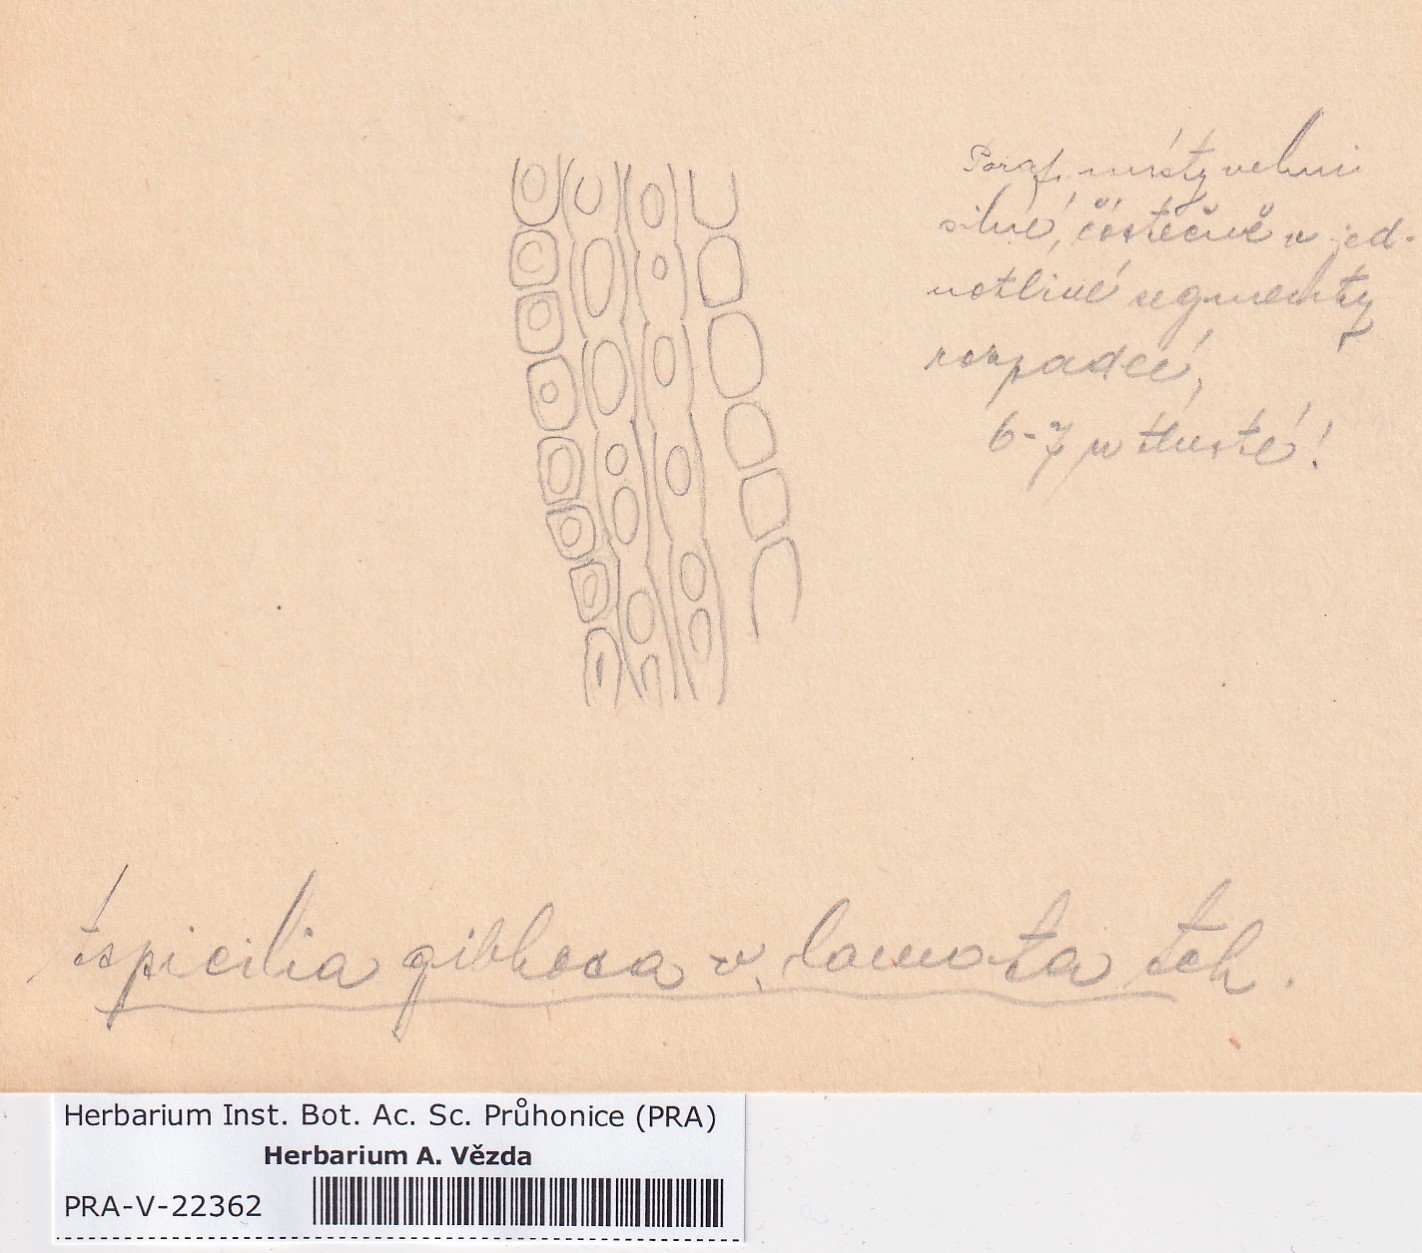 Paraf. místy velmi
silné, částečně v jed-
notlivé segmenty
rozpadlé,
6-7 μ tlusté!
Aspicilia gibbosa v. lamota Sch.
Herbarium Inst. Bot. Ac. Sc. Průhonice (PRA)
Herbarium A. Vězda
PRA-V-22362